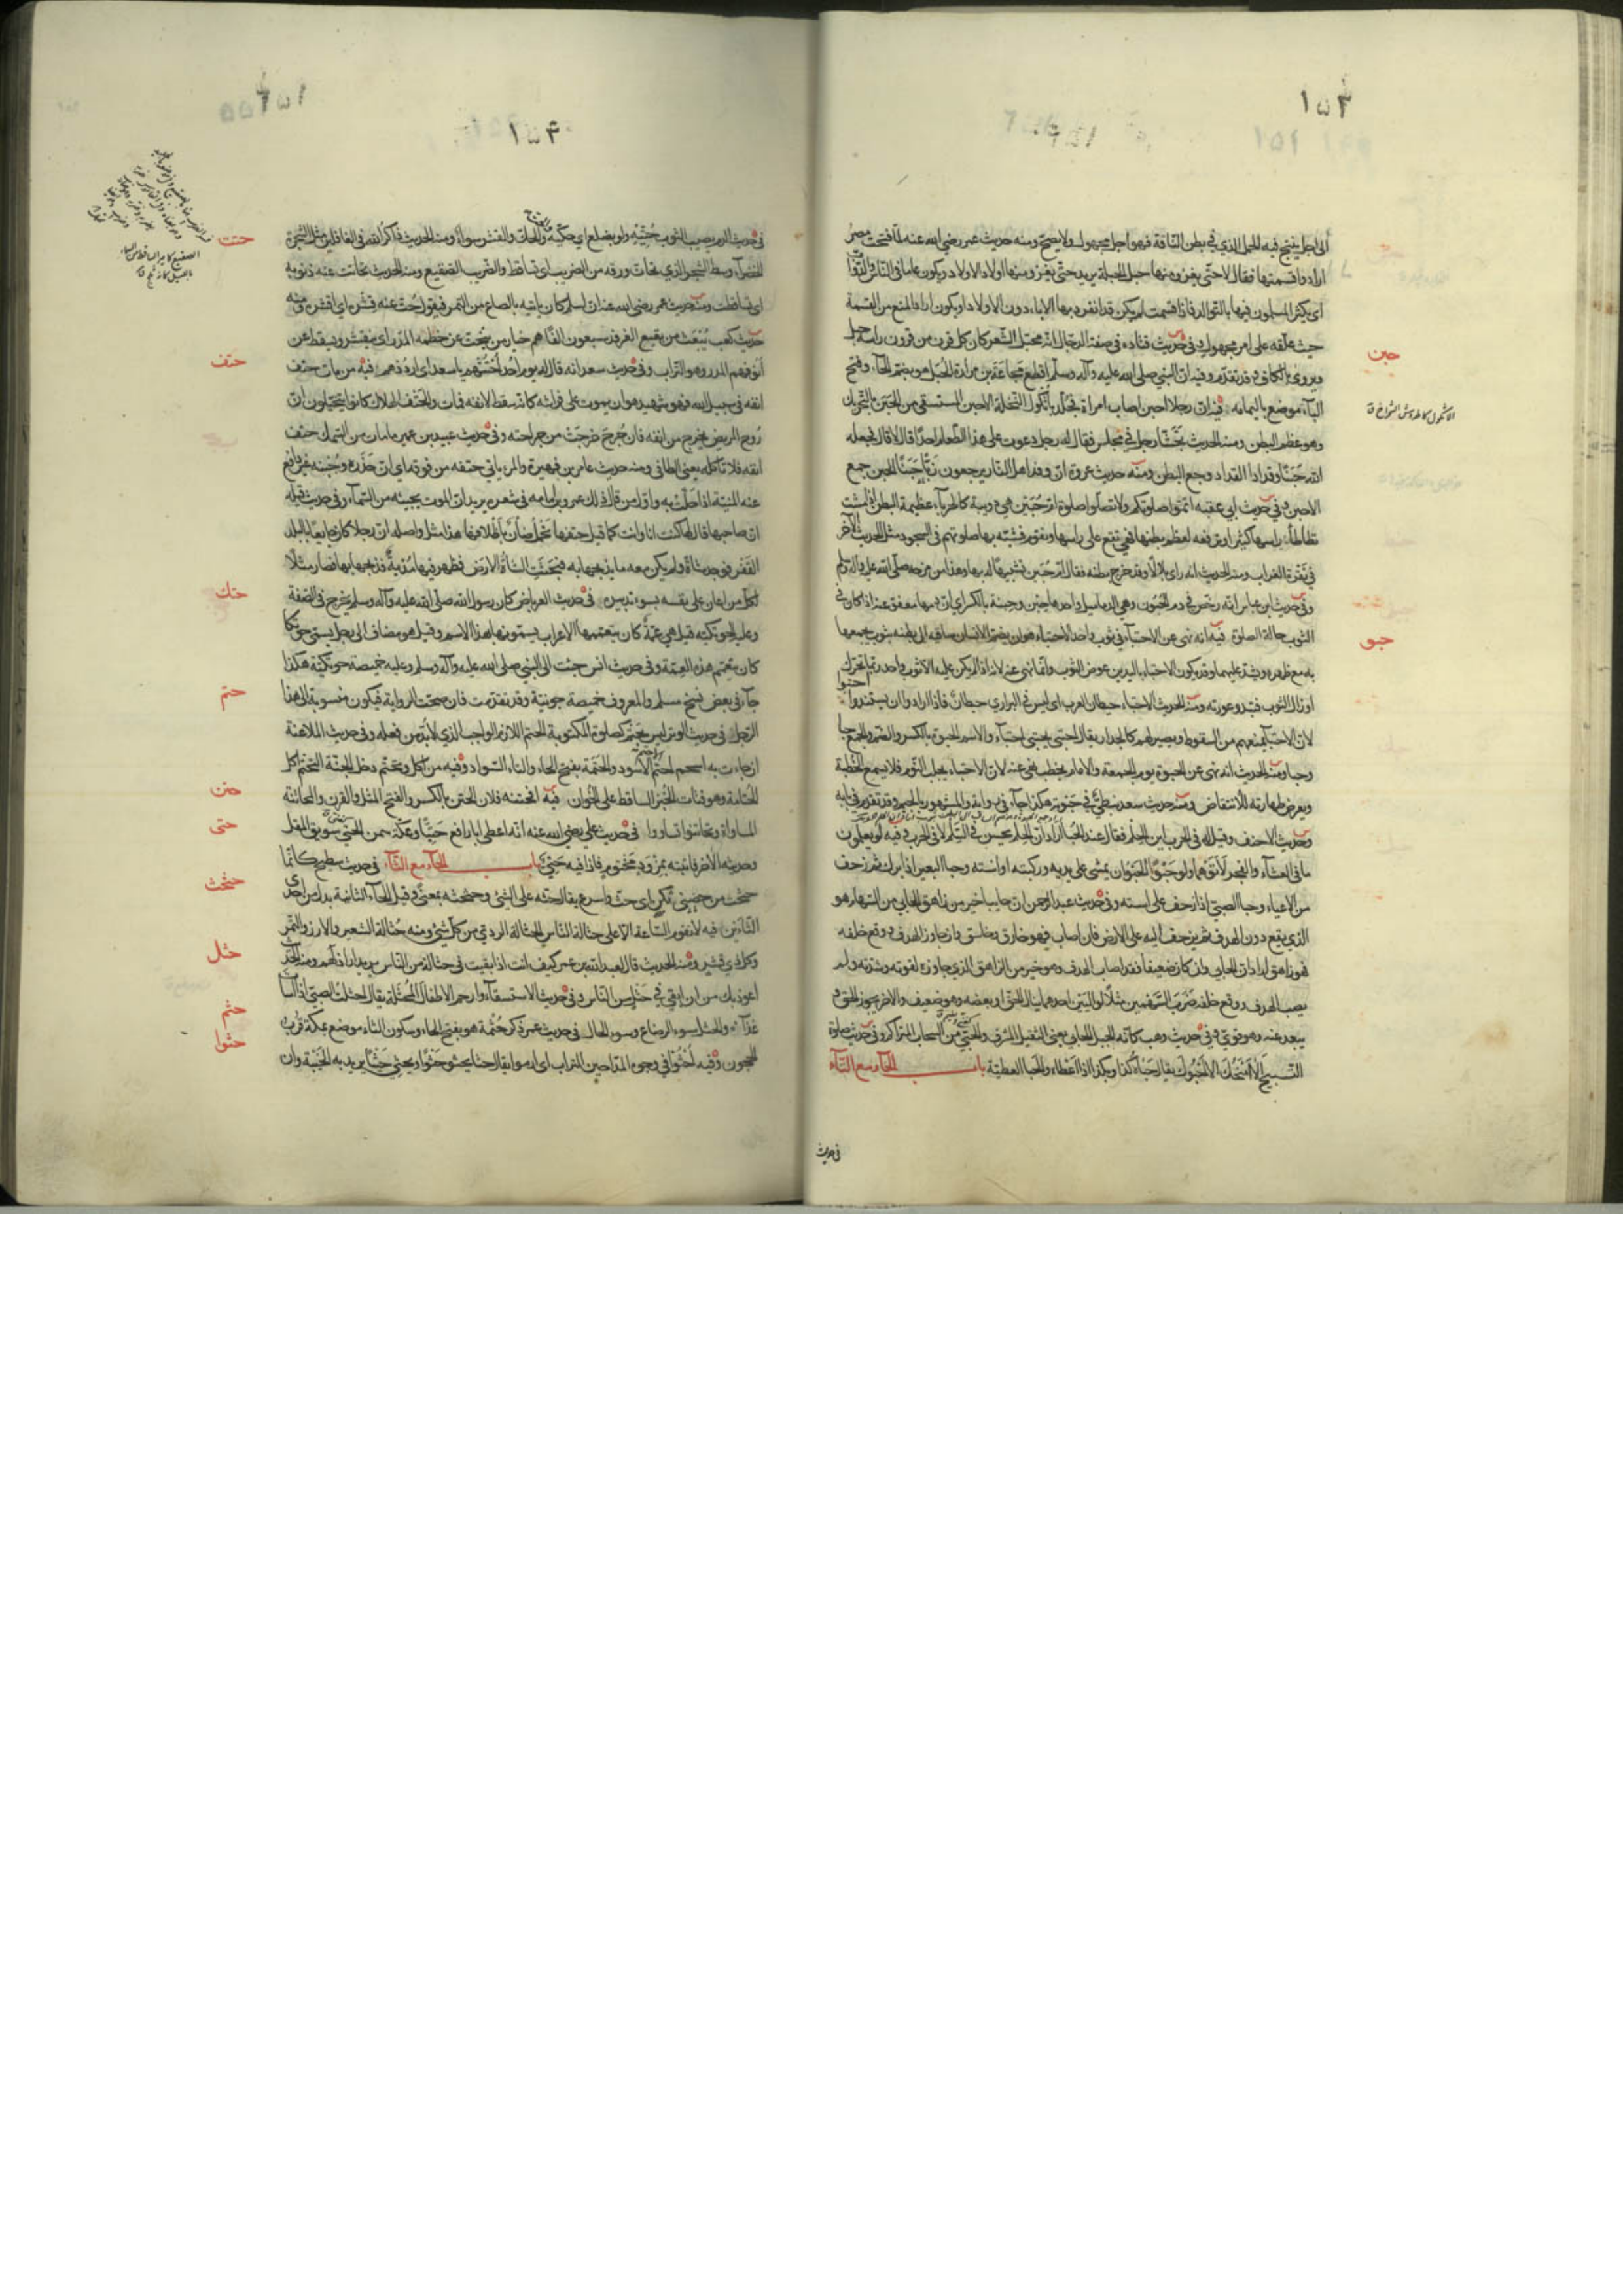 ١٥٣
الى اجل ينتج فيه الحمل الذي في بطن الناقة فهو اجل مجهول ولا يصح ومنه حديث عمر رضي الله عنه لما فتحت مصر
ارادوا قسمتها فقال لا حتى يغزو منها حبل الحبلة يريد حتى يغزو منها اولاد الاولاد ويكون عاما في الناس والدواب
اي يكثر المسلمون فيها بالتوالد فاذا قسمت لم يكن قد انفرد بها الاباء دون الاولاد او يكون اراد المنع من القسمة
حيث علقه على امر مجهول وفي حديث قتادة في صفة الدجال انه محبل الشعر كان كل قرن من قرون راسه حبل
ويروى بالكاف وقد تقدم وفيه ان النبي صلى الله عليه وآله وسلم اقطع مجاعة بن مرارة الحبل هو بضم الحاء وفتح
الباء موضع باليمامة فيه ان رجلا احبن اصاب امراة فجلد باثكول النخلة الاحبن المستسقي من الحبن بالتحريك
حبن
الاثكول
وهو عظم البطن ومنه الحديث تجشا رجل في مجلس فقال له رجل دعوت على هذا الطعام احدا قال لا قال فجعله
الله حبنا وقدادا القداد وجع البطن ومنه حديث عروة ان وفد اهل النار يرجعون زبا حبنا الحبن جمع
الاحبن وفي حديث ابي عقبة اتموا صلوتكم ولا تصلوا صلوة ام حبين هي دويبة كالحرباء عظيمة البطن اذا مشت
تطاطئ راسها كثيرا وترفعه لعظم بطنها فهي تقع على راسها وتقوم فشبه بها صلوتهم في السجود مثل الحديث الآخر
في نقرة الغراب ومنه الحديث انه راى بلالا وقد خرج بطنه فقال ام حبين تشبيها له بها وهذا من مزحه صلى الله عليه وآله وسلم
وفي حديث ابن عباس انه رخص في دم الحبون وهي الدماميل واحدها حبن وحبنة بالكسر اي ان دمها معفو عنه اذا كان في
الثوب حالة الصلوة فيه انه نهى عن الاحتباء في ثوب واحد الاحتباء هو ان يضم الانسان ساقيه الى بطنه بثوب يجمعهما
حبو
به مع ظهره ويشده عليهما وقد يكون الاحتباء باليدين عوض الثوب وانما نهى عنه لانه اذا لم يكن عليه الا ثوب واحد ربما تحرك
او زال الثوب فتبدو عورته ومنه الحديث الاحتباء حيطان العرب اي ليس في البراري حيطان فاذا ارادوا ان يستندوا احتبوا
لان الاحتباء يمنعهم من السقوط ويصير لهم كالجدار يقال احتبى يحتبي احتباء والاسم الحبوة بالكسر والضم والجمع حبا
وحبا ومنه الحديث انه نهى عن الحبوة يوم الجمعة والامام يخطب نهى عنه لان الاحتباء يجلب النوم فلا يسمع الخطبة
ويعرض طهارته للانتقاض ومنه حديث سعد نبطي في حبوته هكذا جاء في رواية والمشهور بالجيم وقد تقدم في بابه
وحديث الاحنف وقيل له في الحرب اين الحلم فقال عند الحبا اراد ان الحلم يحسن في السلم لا في الحرب وفيه لو يعلمون
ما في العشاء والفجر لأتوهما ولو حبوا الحبو ان يمشي على يديه وركبتيه او استه وحبا البعير اذا برك ثم زحف
من الاعياء وحبا الصبي اذا زحف على استه وفي حديث عبد الرحمن ان حابيا خير من زاهق الحابي من السهام هو
الذي يقع دون الهدف ثم يزحف اليه على الارض فان اصاب فهو خارق وخاسق وان جاوز الهدف ووقع خلفه
فهو زاهق اراد ان الحابي وان كان ضعيفا فقد اصاب الهدف وهو خير من الزاهق الذي جاوزه لقوته وشدته ولم
يصب الهدف ووقع خلفه ضرب السهمين مثلا لواليين احدهما ينال الحق او بعضه وهو ضعيف والآخر يجوز الحق و
يبعد عنه وهو قوي وفي حديث وهب كانه الجبل الحابي يعني الثقيل المشرف والحبي من السحاب المتراكم وفي حديث صلوة
التسبيح الا امنحك الا احبوك يقال حباه كذا وبكذا اذا اعطاه والحباء العطية باب الحاء مع التاء
في حديث
١٥٤
في حديث الدم يصيب الثوب حتيه ولو بضلع اي حكيه والحك والحت والقشر سواء ومنه الحديث ذاكر الله في الغافلين مثل الشجرة
حتت
الخضراء وسط الشجر الذي تحات ورقه من الضريب اي تساقط والضريب الصقيع ومنه الحديث تحاتت عنه ذنوبه
اي تساقطت ومنه حديث عمر رضي الله عنه ان اسلم كان ياتيه بالصاع من التمر فيقول حت عنه قشره اي اقشره ومنه
حديث كعب يبعث من بقيع الغرقد سبعون الفا هم خيار من ينحت عن خطمه المدر اي ينقشر ويسقط عن
انوفهم المدر وهو التراب وفي حديث سعد انه قال له يوم احد احتتهم يا سعد اي ارددهم فيه من مات حتف
حتف
انفه في سبيل الله فهو شهيد هو ان يموت على فراشه كانه سقط لانفه فمات والحتف الهلاك كانوا يتخيلون ان
روح المريض يخرج من انفه فان جرح خرجت من جراحته وفي حديث عبيد بن عمير ما مات من السمك حتف
انفه فلا تاكله يعني الطافي ومنه حديث عامر بن فهيرة والمرء ياتي حتفه من فوقه اي ان حذره وجبنه غير دافع
عنه المنية اذا حلت به واول من قال ذلك عمرو بن مامة في شعره يريد ان الموت يجيئه من السماء وفي حديث قيلة
ان صاحبها قال لها كنت انا وانت كما قيل حتفها تحمل ضان باظلافها هذا مثل واصله ان رجلا كان جايعا بالبلد
القفر فوجد شاة ولم يكن معه ما يذبحها به فبحثت الشاة الارض فظهر فيها مدية فذبحها بها فصار مثلا
لكل من اعان على نفسه بسوء تدبيره في حديث العرباض كان رسول الله صلى الله عليه وآله وسلم يخرج في الصفة
حتك
وعليه الحوتكية قيل هي عمة كان يتعممها الاعراب يسمونها بهذا الاسم وقيل هو مضاف الى رجل يسمى حوتكا
كان يتعمم هذه العمة وفي حديث انس جئت الى النبي صلى الله عليه وآله وسلم وعليه خميصة حوتكية هكذا
جاء في بعض نسخ مسلم والمعروف خميصة جونية وقد تقدمت فان صحت الرواية فيكون منسوبة الى هذا
الرجل في حديث الوتر ليس بحتم كصلوة المكتوبة الحتم اللازم الواجب الذي لا بد من فعله وفي حديث الملاعنة
حتم
ان جاءت به اسحم احتم الاحتم الاسود والحتمة بفتح الحاء والتاء السواد وفيه من اكل وتحتم دخل الجنة التحتم اكل
الحتامة وهو فتات الخبز الساقط على الخوان فيه افحتنه فلان الحتن بالكسر والفتح المثل والقرن والمحاتنة
حتن
المساواة وتحاتنوا تساووا في حديث علي رضي الله عنه انه اعطى ابا رافع حتيا وعكة سمن الحتي سويق المقل
حتى
وحديثه الآخر فاتيته بمزود مختوم فاذا فيه حتي باب الحاء مع الثاء في حديث سطيح كانما
حثحث من حضني ثكن اي حث واسرع يقال حثه على الشئ وحثحثه بمعنى وقيل الحاء الثانية بدل من احدى
حثحث
الثاءين فيه لا تقوم الساعة الا على حثالة الناس الحثالة الردي من كل شئ ومنه حثالة الشعير والارز والتمر
حثل
وكل ذي قشر ومنه الحديث قال لعبد الله بن عمر كيف انت اذا بقيت في حثالة من الناس يريد اراذلهم ومنه الحديث
اعوذ بك من ان ابقى في حثل من الناس وفي حديث الاستسقاء وارحم الاطفال المحثلة يقال احثلت الصبي اذا اسأت
غذاءه والحثل سوء الرضاع وسوء الحال في حديث عمر ذكر حثمة هو بفتح الحاء وسكون الثاء موضع بمكة قرب
حثم
الحجون وفيه احثوا في وجوه المداحين التراب اي ارموا يقال حثا يحثو حثوا ويحثي حثيا يريد به الخيبة وان
حثوا